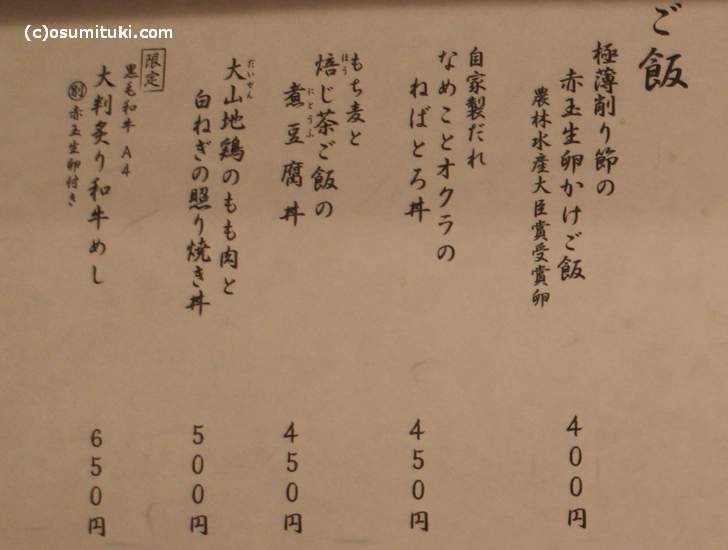 (c)osumituki.com
ご飯
極薄削り節の
赤玉生卵かけご飯
農林水産大臣賞受賞卵
400円
自家製だれ
なめことオクラの
ねばとろ丼
450円
もち麦と
焙じ茶ご飯の
ほう
煮豆腐丼
にとうふ
450円
大山地鶏のもも肉と
だいせん
白ねぎの照り焼き丼
500円
限定
黒毛和牛 A4
大判炙り和牛めし
㊕赤玉生卵付き
650円